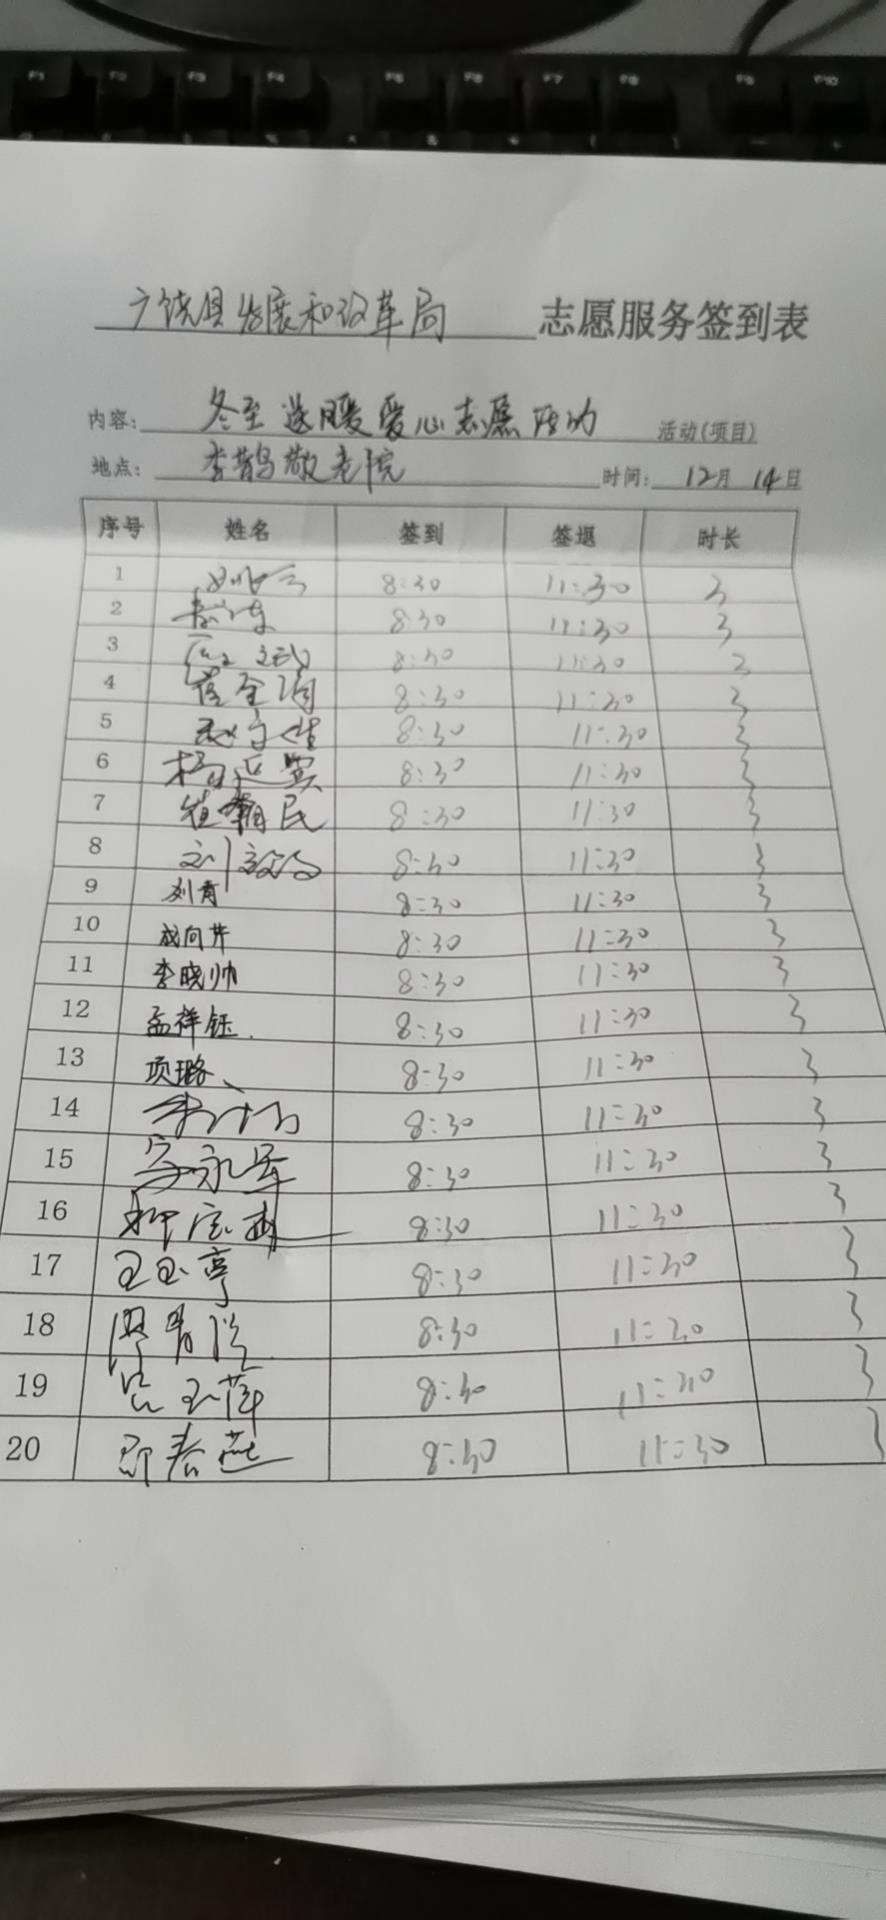 F1 F2 F3 F4 F5 F6 F7 F8 F9 F10
广饶县发展和改革局 志愿服务签到表
内容: 冬至送暖爱心志愿活动 活动(项目)
地点: 李鹊敬老院 时间: 12月 14日
序号 姓名 签到 签退 时长
1 8:30 11:30 3
2 8:30 11:30 3
3 8:30 11:30 3
4 8:30 11:30 3
5 8:30 11:30 3
6 杨延宾 8:30 11:30 3
7 崔朝民 8:30 11:30 3
8 8:30 11:30 3
9 刘育 8:30 11:30 3
10 成向芹 8:30 11:30 3
11 李晓帅 8:30 11:30 3
12 孟祥钰 8:30 11:30 3
13 项璐 8:30 11:30 3
14 8:30 11:30 3
15 永军 8:30 11:30 3
16 8:30 11:30 3
17 王玉亭 8:30 11:30 3
18 8:30 11:30 3
19 玉萍 8:30 11:30 3
20 春燕 8:30 11:30 3